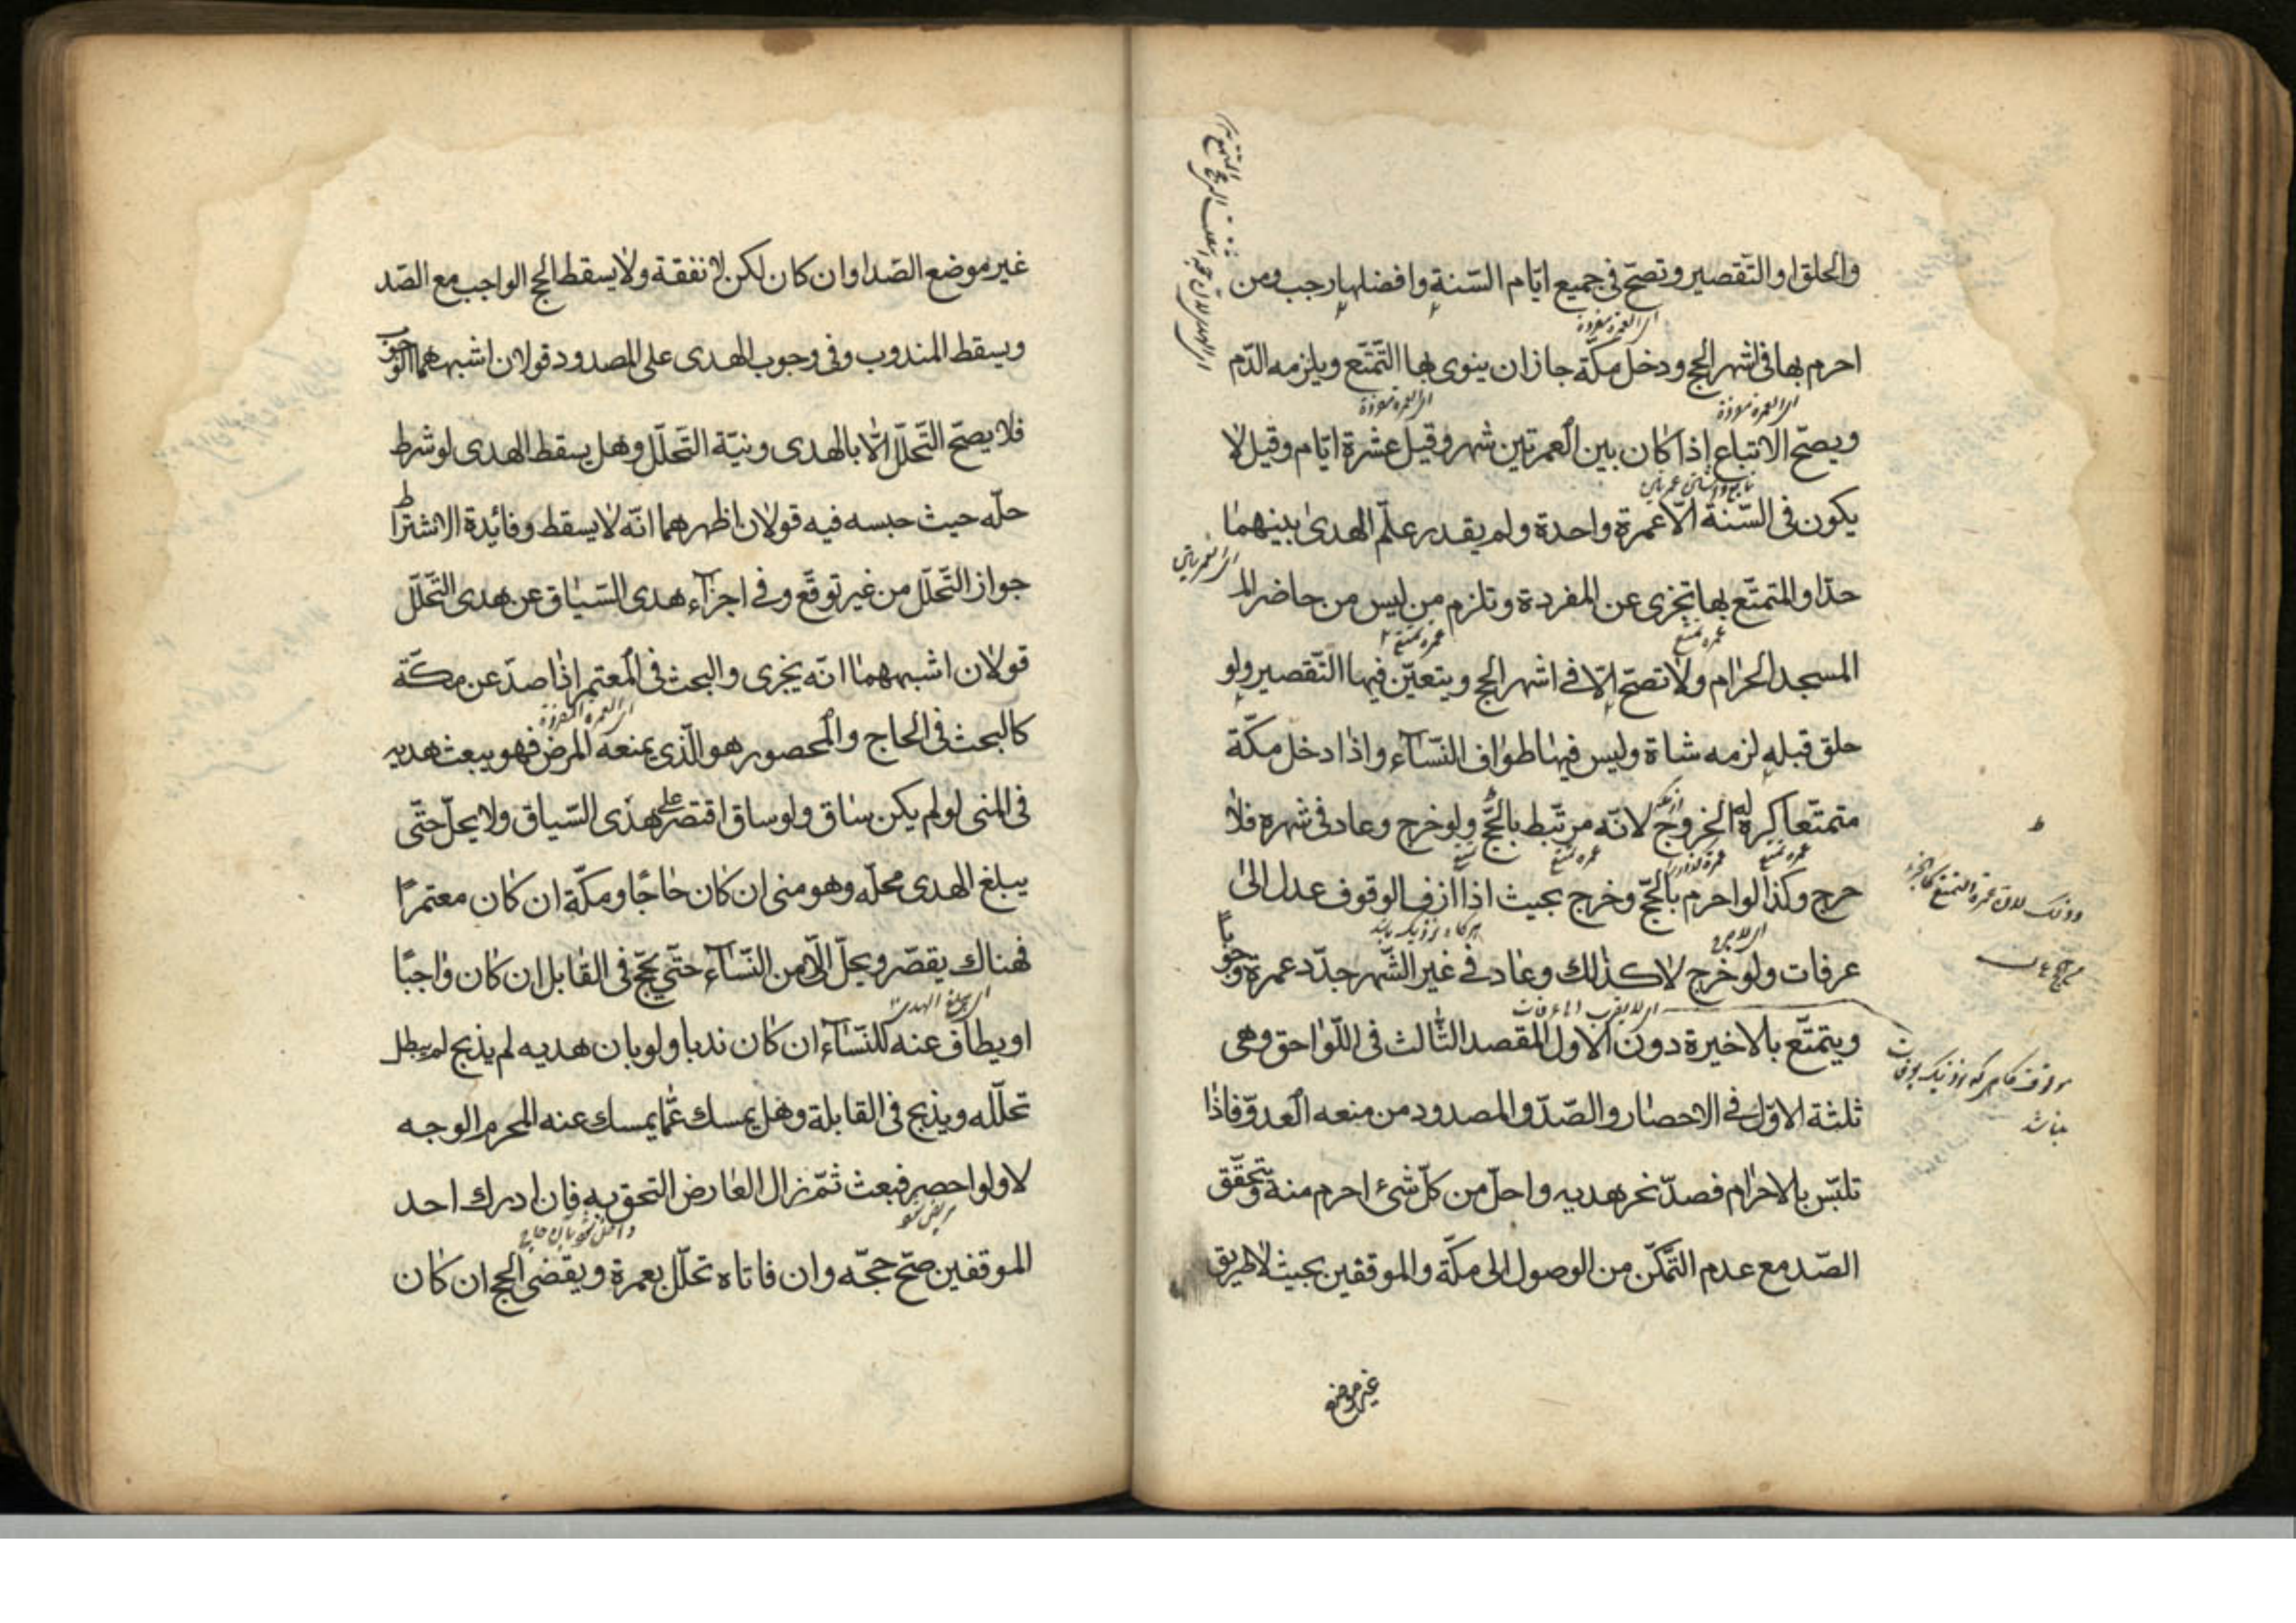 والحلق او التّقصير وتصحّ فى جميع ايّام السّنة وافضلها رجب ومن
اى العمره مفردة
احرم بها فى اشهر الحج ودخل مكّة جاز ان ينوى بها التّمتّع ويلزمه الدّم
اى العمره مفردة
اى العمره مفردة
ويصحّ الاتباع اذا كان بين العمرتين شهر وقيل عشرة ايّام وقيل لا
يكون فى السّنة الّا عمرة واحدة ولم يقدر علم الهدى بينهما
حدّا والمتمتّع بها تجزى عن المفردة وتلزم من ليس من حاضر الم
عمره تمتع
عمره تمتع
المسجد الحرام ولا تصحّ الّا فى اشهر الحج ويتعيّن فيها التّقصير ولو
حلق قبله لزمه شاة وليس فيها طواف النّساء واذا دخل مكّة
متمتّعا كره له الخروج لانّه مرتبط بالحجّ ولو خرج وعاد فى شهره فلا
عمره تمتع
عمره تمتع
تمتع
حرج وكذا لو احرم بالحجّ وخرج بحيث اذا ازف الوقوف عدل الى
عرفات ولو خرج لا كذلك وعاد فى غير الشّهر جدّد عمرة وجوبا
ويتمتّع بالاخيرة دون الاول المقصد الثّالث فى اللّواحق وهى
ثلثة الاوّل فى الاحصار والصّدّ والمصدود من منعه العدوّ فاذا
تلبّس بالاحرام فصدّ نحر هديه واحلّ من كلّ شىء احرم منه ويتحقّق
الصّد مع عدم التّمكّن من الوصول الى مكّة والموقفين بحيث لا طريق
غير موضع
غير موضع الصّد او ان كان لكن لا نفقة ولا يسقط الحج الواجب مع الصّد
ويسقط المندوب وفى وجوب الهدى على المصدود قولان اشبههما الوجوب
فلا يصحّ التّحلّل الّا بالهدى ونيّة التّحلّل وهل يسقط الهدى لو شرط
حلّه حيث حبسه فيه قولان اظهرهما انّه لا يسقط وفائدة الاشتراط
جواز التّحلّل من غير توقّع وفى اجزاء هدى السّياق عن هدى التّحلّل
قولان اشبههما انّه يجزى والبحث فى المعتمر اذا صدّ عن مكّة
اى العمره المفردة
كالبحث فى الحاج والمحصور هو الّذى يمنعه المرض فهو يبعث هديه
فى المنى لو لم يكن ساق ولو ساق اقتصر على هدى السّياق ولا يحلّ حتّى
يبلغ الهدى محلّه وهو منى ان كان حاجّا ومكّة ان كان معتمرًا
فهناك يقصّر ويحلّ الّا من النّساء حتّى يحجّ فى القابل ان كان واجبًا
اى يبلغ الهدى
او يطاف عنه للنّساء ان كان ندبا ولو بان هديه لم يذبح لم يبطل
تحلّله ويذبح فى القابلة وهل يمسك عمّا يمسك عنه المحرم الوجه
لا ولو احصر فبعث ثمّ زال العارض التحق به فان ادرك احد
الموقفين صحّ حجّه وان فاتاه تحلّل بعمرة ويقضى الحج ان كان